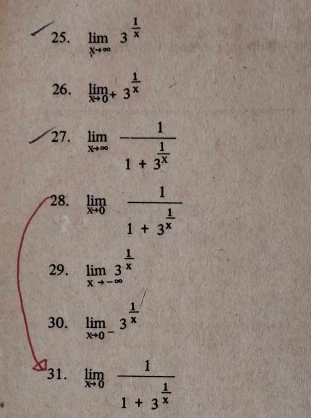 25. lim x→∞ 3^(1/x)
26. lim x→0+ 3^(1/x)
27. lim x→∞ 1/(1 + 3^(1/x))
28. lim x→0 1/(1 + 3^(1/x))
29. lim x→-∞ 3^(1/x)
30. lim x→0- 3^(1/x)
31. lim x→0 1/(1 + 3^(1/x))